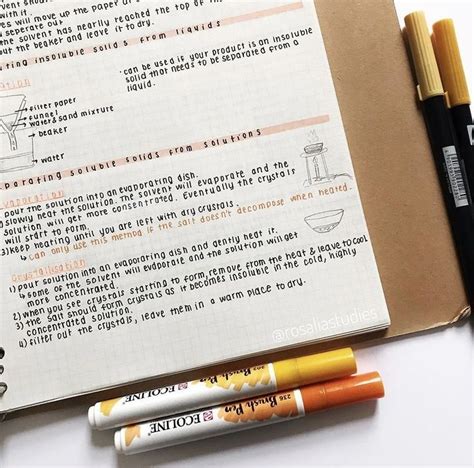 will move up the paper at
it.
seperate out.
the solvent has nearly reached the top of the
out the beaker and leave it to dry.
ating insoluble solids from liquids
ation
· can be used if your product is an insoluble
solid that needs to be separated from a
liquid.
filter paper
funnel
water & sand mixture
beaker
water
parating soluble solids from solutions
Evaporation
pour the solution into an evaporating dish.
slowly heat the solution. The solvent will evaporate and the
solution will get more concentrated. Eventually the crystals
will start to form.
3) keep heating until you are left with dry crystals.
↳ can only use this method if the salt doesn't decompose when heated.
Crystallisation
1) pour solution into an evaporating dish and gently heat it.
↳ some of the solvent will evaporate and the solution will get
more concentrated.
2) when you see crystals starting to form, remove from the heat & leave to cool
3) the salt should form crystals as it becomes insoluble in the cold, highly
concentrated solution.
4) filter out the crystals, leave them in a warm place to dry.
@rosaliastudies
ECOLINE Brush Pen 202
ECOLINE Brush Pen 236